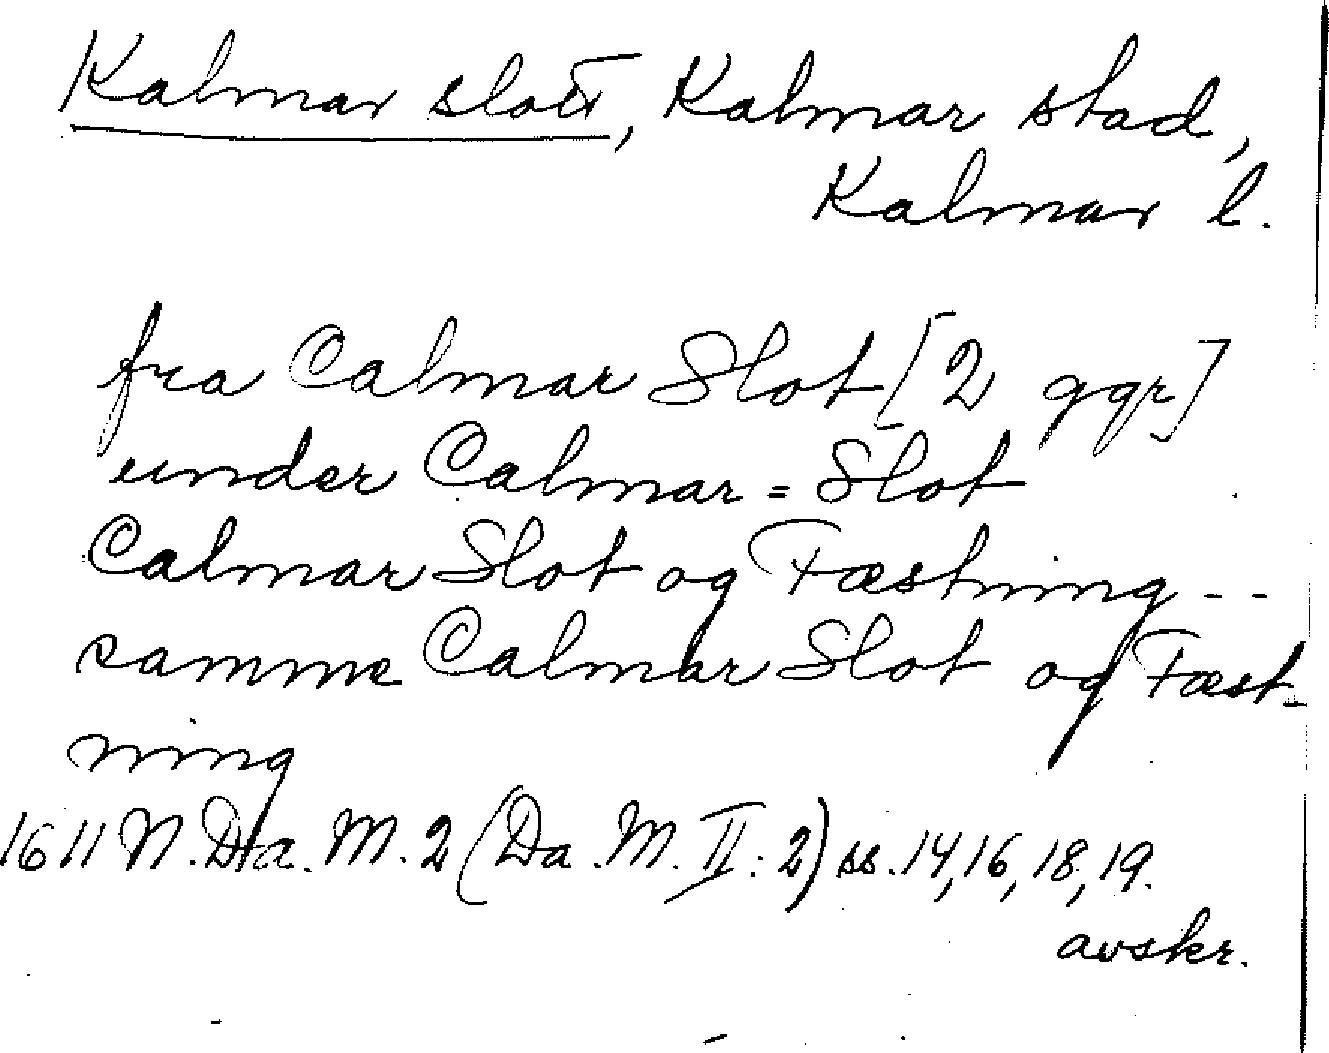 Kalmar slott, Kalmar stad,
Kalmar l.
fra Calmar Slot [2 ggr]
under Calmar=Slot
Calmar Slot og Fæstning --
samme Calmar Slot og Fæst-
ning
1611 N. Da. M. 2 (Da. M. II: 2) ss. 14, 16, 18, 19.
avskr.